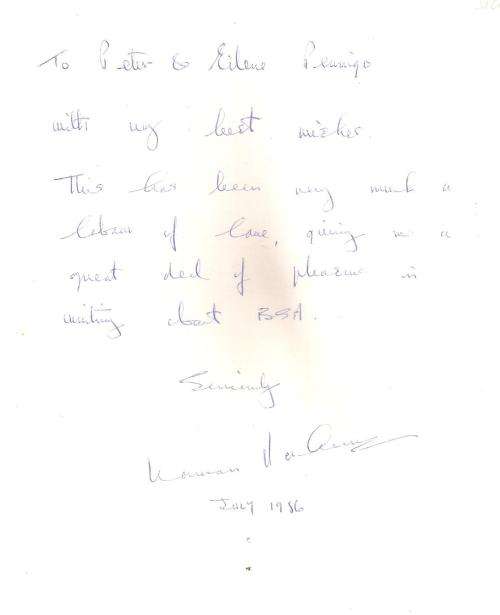 To Peter & Eilene Perrigo
with my best wishes.
This has been very much a
labour of love, giving me a
great deal of pleasure in
writing about BSA.
Sincerely
Norman Vanhouse
July 1986